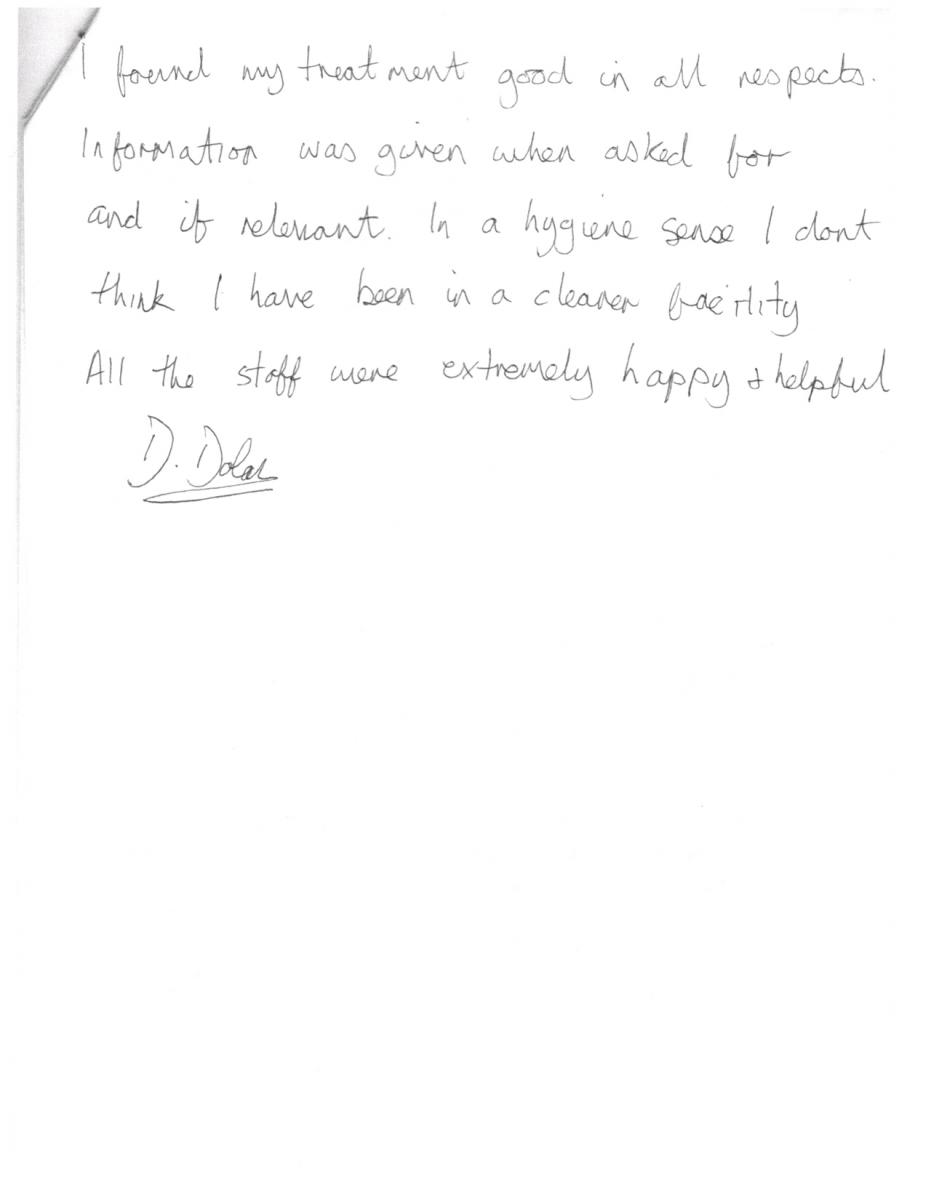 I found my treatment good in all respects.
Information was given when asked for
and if relevant. In a hygiene sense I dont
think I have been in a cleaner facility
All the staff were extremely happy & helpful
D. Dolan